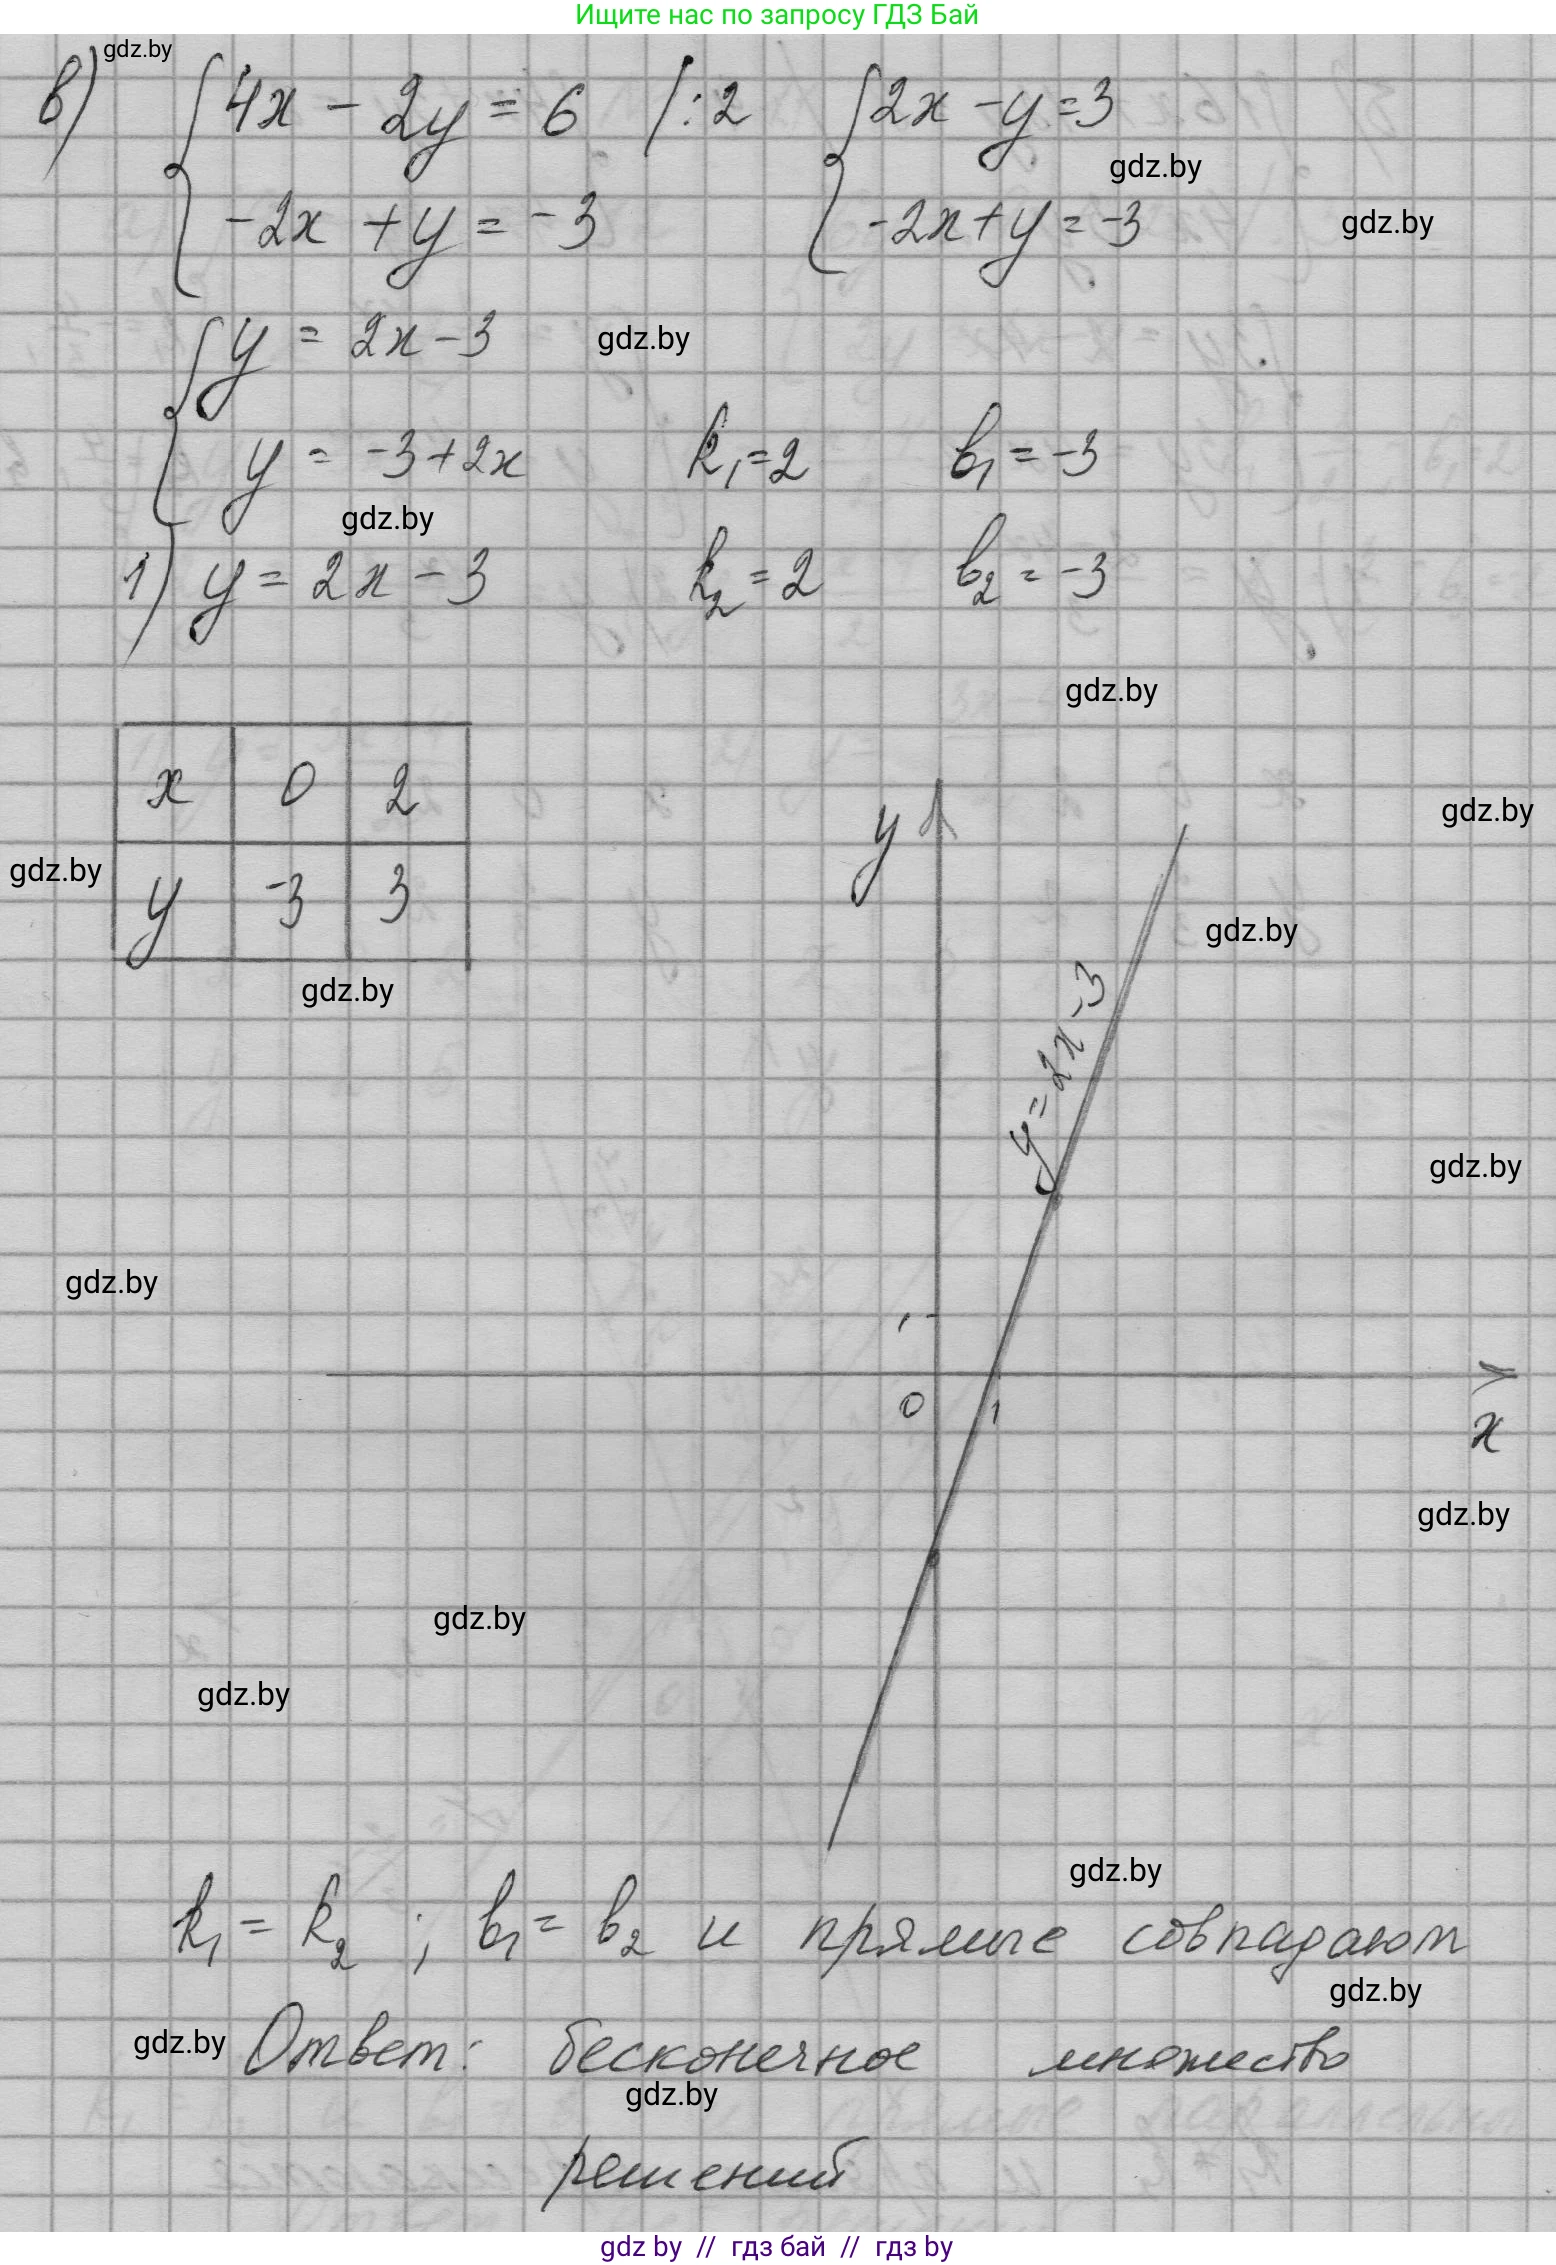 Ищите нас по запросу ГДЗ Бай
gdz.by
в) 4x - 2y = 6 /:2 2x - y = 3
gdz.by
-2x + y = -3 -2x + y = -3
gdz.by
y = 2x - 3
gdz.by
y = -3 + 2x k₁ = 2 в₁ = -3
gdz.by
1) y = 2x - 3 k₂ = 2 в₂ = -3
gdz.by
x 0 2
y -3 3
gdz.by
gdz.by
gdz.by
gdz.by
y
y = 2x - 3
gdz.by
gdz.by
1
0 1
x
gdz.by
gdz.by
gdz.by
gdz.by
k₁ = k₂ ; в₁ = в₂ и прямые совпадают
gdz.by
gdz.by
Ответ: бесконечное множество
gdz.by
решений
gdz by // гдз бай // gdz by